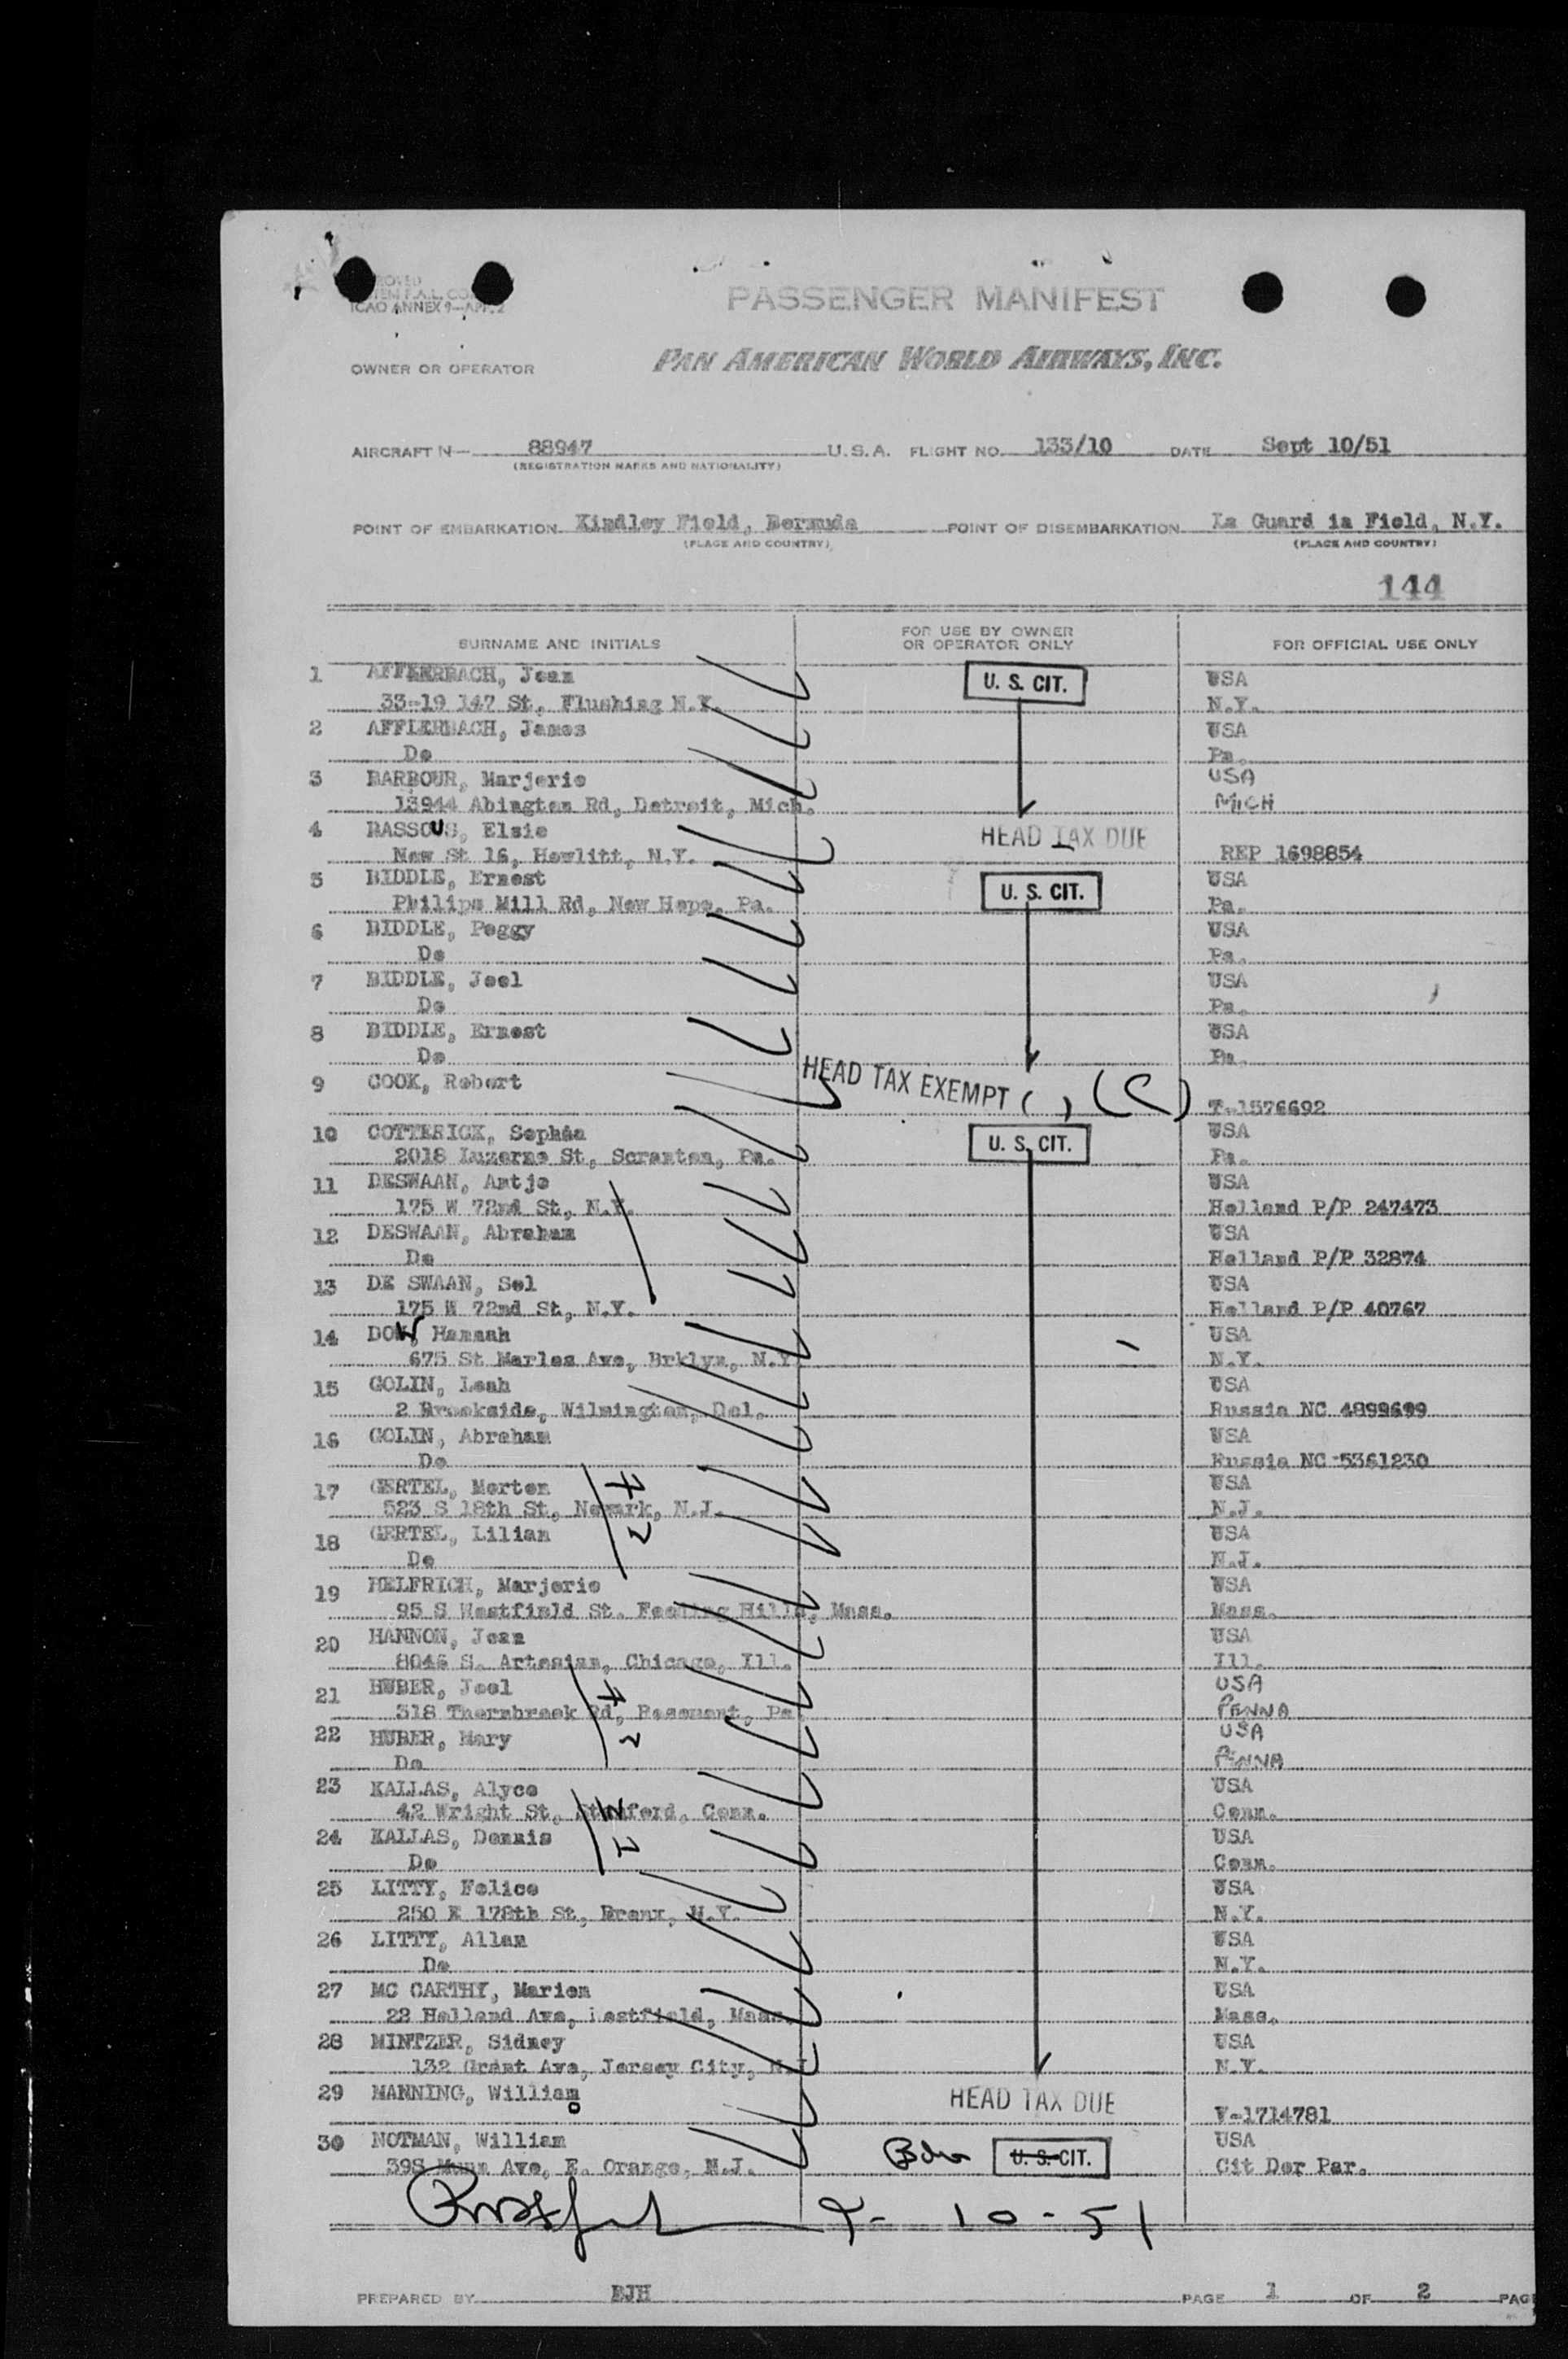 ICAO ANNEX 9—APP. 2
PASSENGER MANIFEST
OWNER OR OPERATOR PAN AMERICAN WORLD AIRWAYS, INC.
AIRCRAFT N— 88947 U.S.A. FLIGHT NO. 133/10 DATE Sept 10/51
(REGISTRATION MARKS AND NATIONALITY)
POINT OF EMBARKATION Kindley Field, Bermuda POINT OF DISEMBARKATION La Guard ia Field, N.Y.
(PLACE AND COUNTRY) (PLACE AND COUNTRY)
144
SURNAME AND INITIALS FOR USE BY OWNER OR OPERATOR ONLY FOR OFFICIAL USE ONLY
1 AFFLERBACH, Jean U. S. CIT. USA
33-19 147 St, Flushing N.Y. N.Y.
2 AFFLERBACH, James USA
Do Pa.
3 BARBOUR, Marjorie USA
13944 Abington Rd, Detroit, Mich. MICH
4 BASSOUS, Elsie HEAD TAX DUE
New St 16, Hewlitt, N.Y. REP 1698854
5 BIDDLE, Ernest U. S. CIT. USA
Philips Mill Rd, New Hope, Pa. Pa.
6 BIDDLE, Peggy USA
Do Pa.
7 BIDDLE, Joel USA
Do Pa.
8 BIDDLE, Ernest USA
Do Pa.
9 COOK, Robert HEAD TAX EXEMPT ( ) (C)
T-1576692
10 COTTERICK, Sophia U. S. CIT. USA
2018 Luzerne St, Scranton, Pa. Pa.
11 DESWAAN, Antje USA
175 W 72nd St, N.Y. Holland P/P 247473
12 DESWAAN, Abraham USA
Do Holland P/P 32874
13 DE SWAAN, Sol USA
175 W 72nd St, N.Y. Holland P/P 40767
14 DOW, Hannah USA
675 St Marles Ave, Brklyn, N.Y. N.Y.
15 GOLIN, Leah USA
2 Brookside, Wilmington, Del. Russia NC 4899699
16 GOLIN, Abraham USA
Do Russia NC 5361230
17 GERTEL, Morton USA
523 S 18th St, Newark, N.J. N.J.
18 GERTEL, Lilian USA
Do N.J.
19 HELFRICH, Marjorie USA
95 S Westfield St. Feeding Hills, Mass. Mass.
20 HANNON, Jean USA
8046 S. Artesian, Chicago, Ill. Ill.
21 HUBER, Joel USA
318 Thornbrook Rd, Rosemont, Pa. PENNA
22 HUBER, Mary USA
Do PENNA
23 KALLAS, Alyce USA
42 Wright St, Stamford, Conn. Conn.
24 KALLAS, Dennis USA
Do Conn.
25 LITTY, Felice USA
250 E 178th St, Bronx, N.Y. N.Y.
26 LITTY, Allan USA
Do N.Y.
27 MC CARTHY, Marion USA
22 Holland Ave, Westfield, Mass. Mass.
28 MINTZER, Sidney USA
132 Grant Ave, Jersey City, N.J. N.Y.
29 MANNING, William HEAD TAX DUE
V-1714781
30 NOTMAN, William U. S. CIT. USA
398 Munn Ave, E. Orange, N.J. Cit Der Par.
9-10-51
PREPARED BY BJH PAGE 1 OF 2 PAG